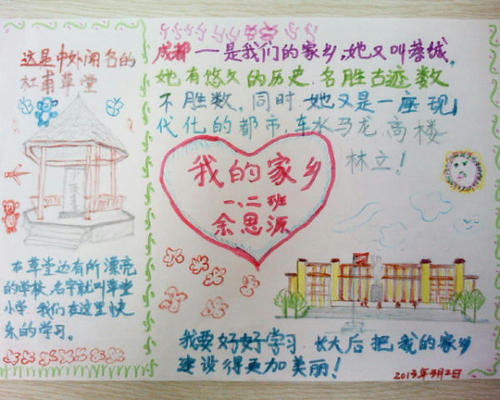 这是中外闻名的
杜甫草堂
在草堂边有所漂亮
的学校,名字叫草堂
小学,我们在这里快
乐的学习。
成都一是我们的家乡,她又叫蓉城,
她有悠久的历史,名胜古迹数
不胜数,同时,她又是一座现
代化的都市,车水马龙,高楼
林立!
我的家乡
一、二班
余思源
我要好好学习,长大后把我的家乡
建设得更加美丽!